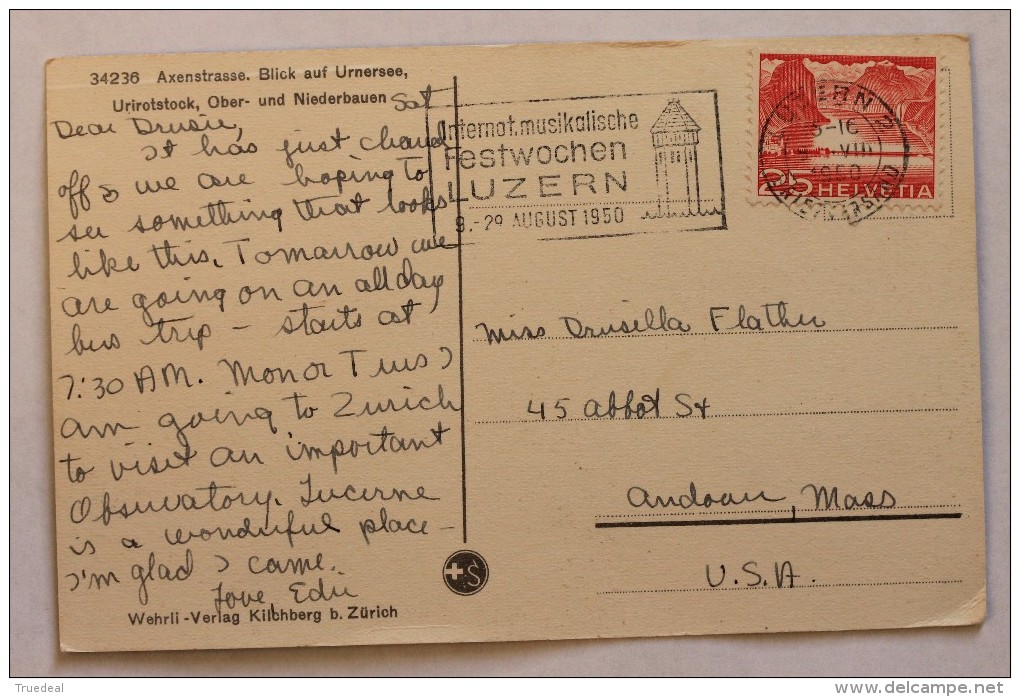 34236 Axenstrasse. Blick auf Urnersee,
Urirotstock, Ober- und Niederbauen
Sat
Dear Drusie,
It has just cleared
off & we are hoping to
see something that looks
like this. Tomorrow we
are going on an all day
bus trip – starts at
7:30 AM. Mon or Tues I
am going to Zurich
to visit an important
Observatory. Lucerne
is a wonderful place –
I'm glad I came.
Love Edie
Wehrli-Verlag Kilchberg b. Zürich
Internat. musikalische
Festwochen
LUZERN
9.-29 AUGUST 1950
LUZERN 2
VIII
1950
BRIEFVERSAND
25 HELVETIA
Miss Drusilla Flather
45 Abbot St
Andover, Mass
U.S.A.
S
Truedeal
www.delcampe.net